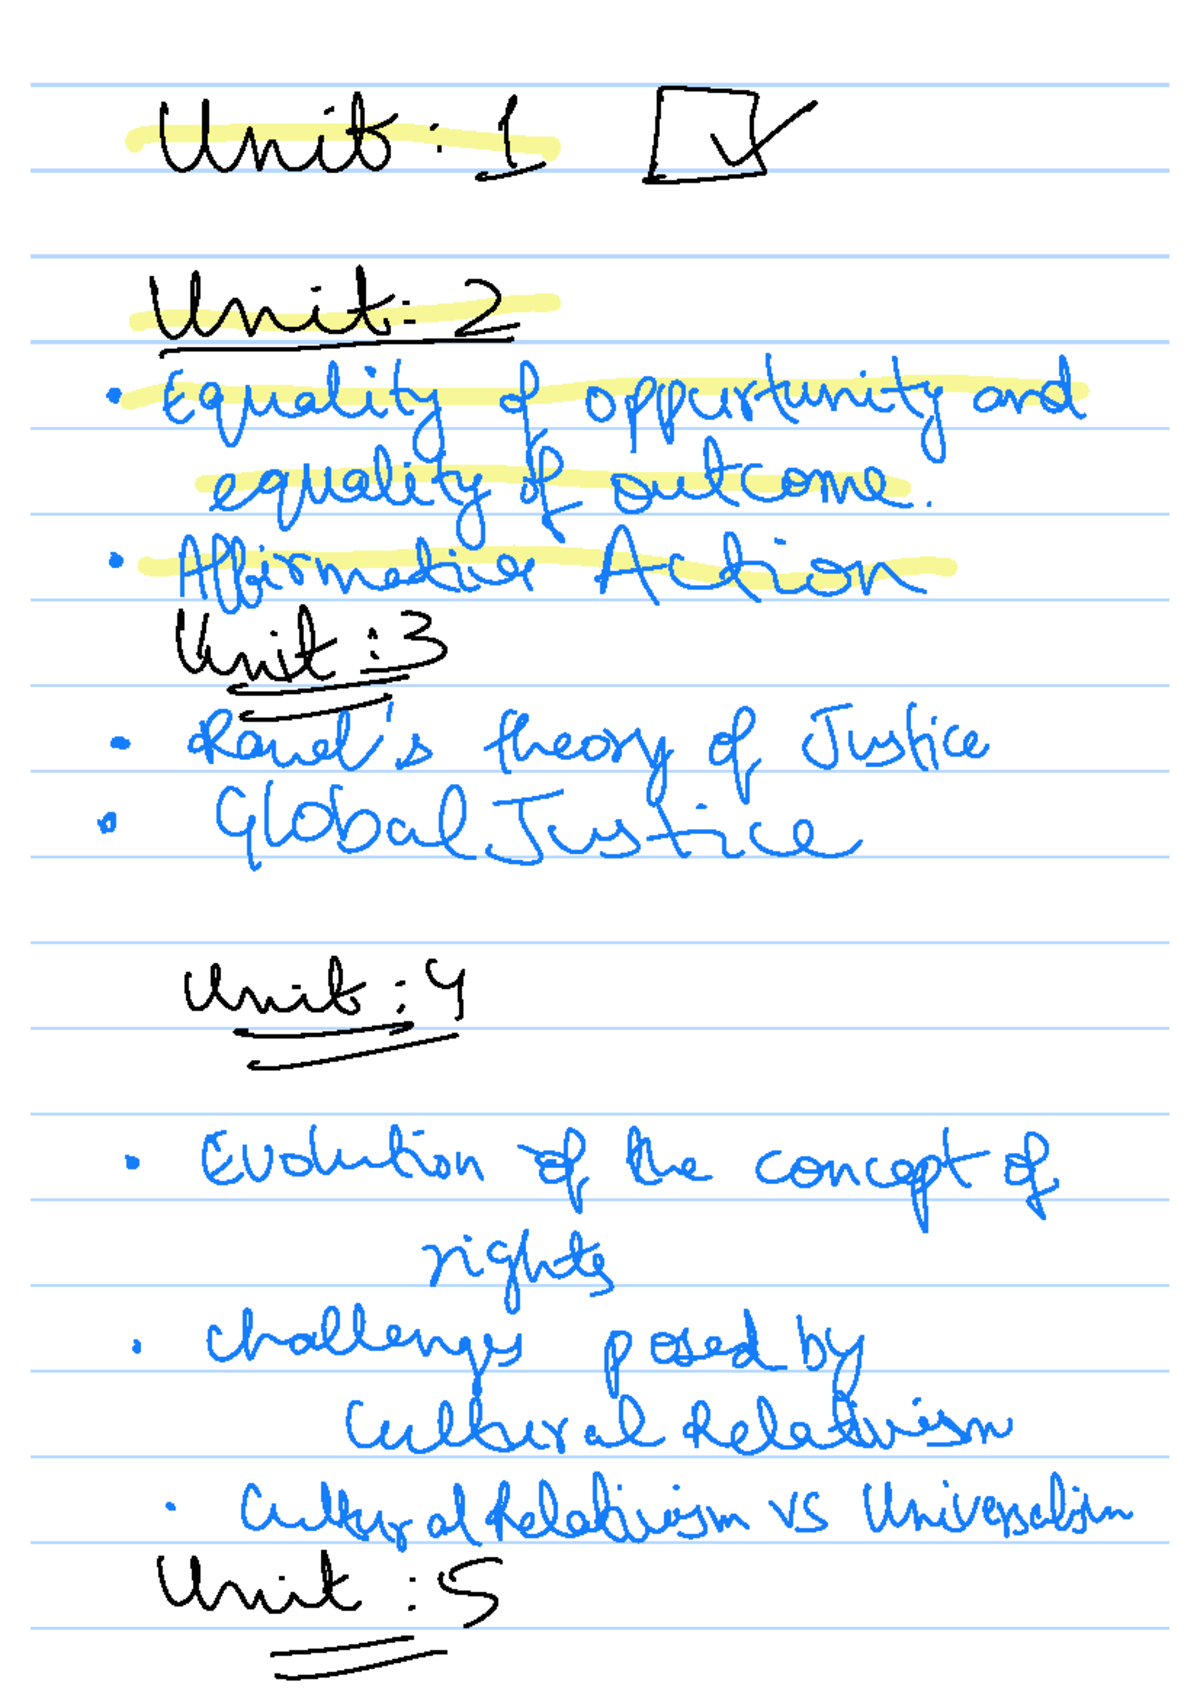 Unit: 1
Unit: 2
• Equality of oppurtunity and
equality of outcome.
• Affirmative Action
Unit: 3
• Rawl's theory of Justice
• Global Justice
Unit: 4
• Evolution of the concept of
rights
• Challenges posed by
Cultural Relativism
• Cultural Relativism vs Universalism
Unit: 5